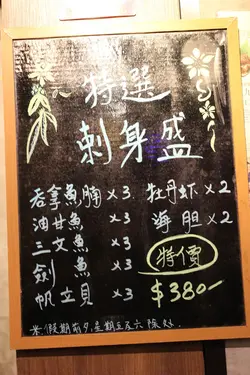 特選
刺身盛
吞拿魚腩 x3 牡丹虾 x2
油甘魚 x3 海胆 x2
三文魚 x3 特價
劍魚 x3 $380-
帆立貝 x3
米.假期前夕,星期五及六除外.